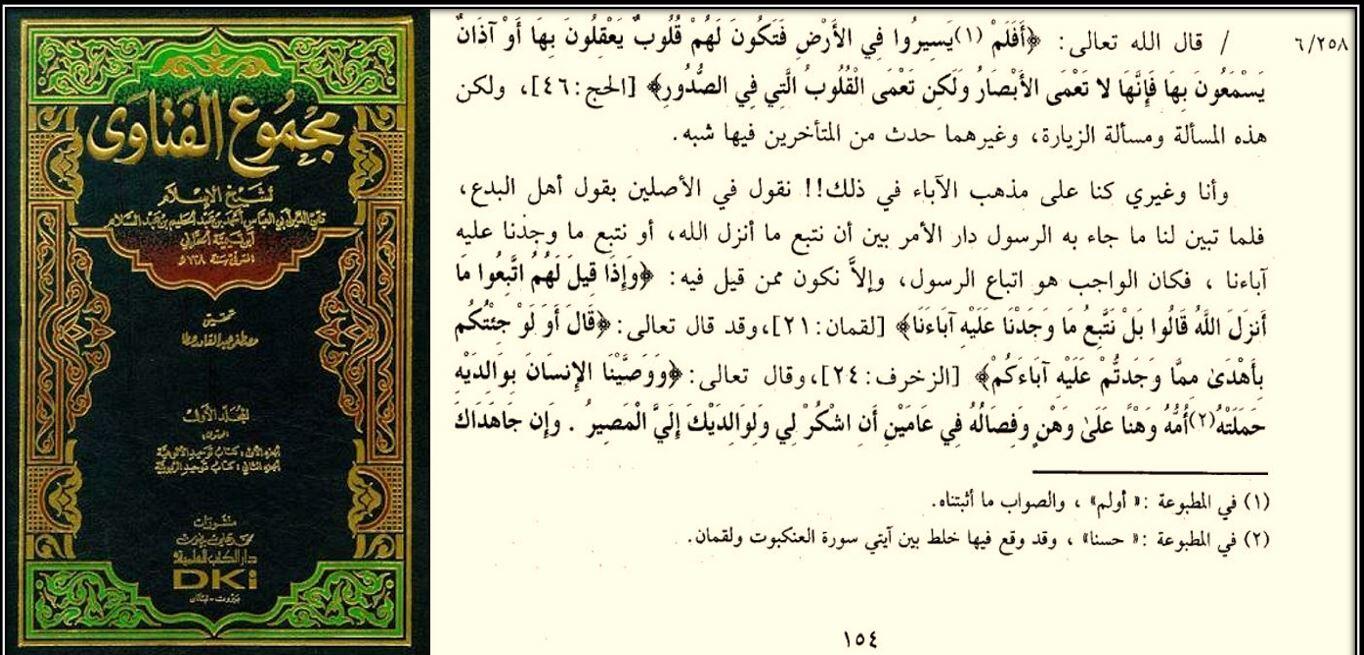 مجموع الفتاوى
لشيخ الإسلام
تقي الدين أبي العباس أحمد بن عبد الحليم بن عبد السلام
ابن تيمية الحراني
المتوفى سنة ٧٢٨ هـ
تحقيق
مصطفى عبد القادر عطا
المجلد الأول
المحتوى:
الجزء الأول: كتاب توحيد الألوهية
الجزء الثاني: كتاب توحيد الربوبية
منشورات
محمد علي بيضون
دار الكتب العلمية
DKi
بيروت - لبنان
٦/٢٥٨ / قال الله تعالى: ﴿أَفَلَمْ (١)يَسِيرُوا فِي الأَرْضِ فَتَكُونَ لَهُمْ قُلُوبٌ يَعْقِلُونَ بِهَا أَوْ آذَانٌ
يَسْمَعُونَ بِهَا فَإِنَّهَا لا تَعْمَى الأَبْصَارُ وَلَكِن تَعْمَى الْقُلُوبُ الَّتِي فِي الصُّدُورِ﴾ [الحج:٤٦]، ولكن
هذه المسألة ومسألة الزيارة، وغيرهما حدث من المتأخرين فيها شبه.
وأنا وغيري كنا على مذهب الآباء في ذلك!! نقول في الأصلين بقول أهل البدع،
فلما تبين لنا ما جاء به الرسول دار الأمر بين أن نتبع ما أنزل الله، أو نتبع ما وجدنا عليه
آباءنا ، فكان الواجب هو اتباع الرسول، وإلاَّ نكون ممن قيل فيه: ﴿وَإِذَا قِيلَ لَهُمُ اتَّبِعُوا مَا
أَنزَلَ اللَّهُ قَالُوا بَلْ نَتَّبِعُ مَا وَجَدْنَا عَلَيْهِ آبَاءَنَا﴾ [لقمان:٢١]،وقد قال تعالى:﴿قَالَ أَوَ لَوْ جِئْتُكُم
بِأَهْدَىٰ مِمَّا وَجَدتُّمْ عَلَيْهِ آبَاءَكُمْ﴾ [الزخرف:٢٤]،وقال تعالى:﴿وَوَصَّيْنَا الإِنسَانَ بِوَالِدَيْهِ
حَمَلَتْهُ(٢)أُمُّهُ وَهْنًا عَلَىٰ وَهْنٍ وَفِصَالُهُ فِي عَامَيْنِ أَنِ اشْكُرْ لِي وَلِوَالِدَيْكَ إِلَيَّ الْمَصِيرُ . وَإِن جاهَدَاكَ
(١) في المطبوعة :« أولم» ، والصواب ما أثبتناه.
(٢) في المطبوعة :« حسنا» ، وقد وقع فيها خلط بين آيتي سورة العنكبوت ولقمان.
١٥٤